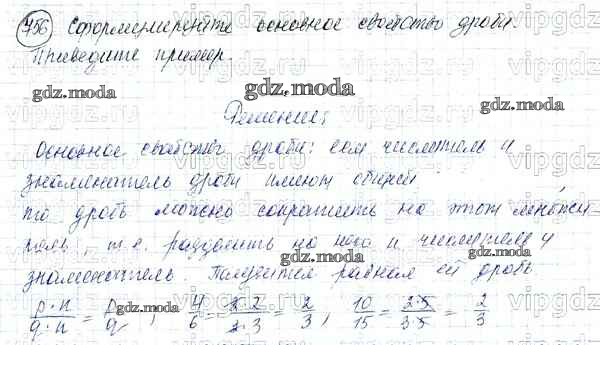 756 Сформулируйте основное свойство дроби.
Приведите пример.
gdz.moda
gdz.moda
Решение:
Основное свойство дроби: если числитель и
знаменатель дроби имеют общий
то дробь можно сократить на этот множи
тель, т.е. разделить на него и числитель и
знаменатель. Получится равная ей дробь
p·n/q·n = p/q; 4/6 = 2·2/2·3 = 2/3, 10/15 = 2·5/3·5 = 2/3
gdz.moda
gdz.moda
gdz.moda
gdz.moda
vipgdz